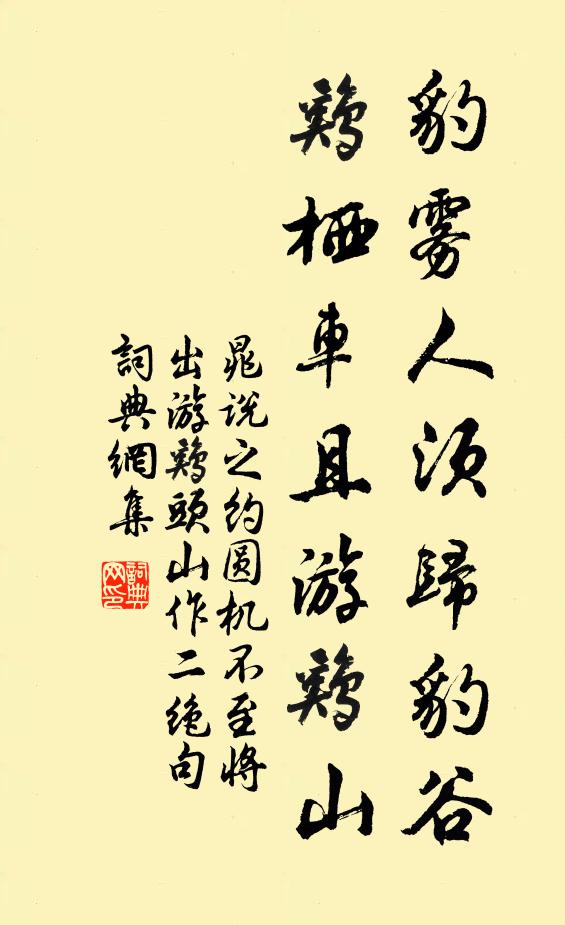 豹雾人须歸豹谷
鷄栖車且游鷄山
晁说之约圆机不至将
出游鷄頭山作二绝句
詞典網集
詞典网印